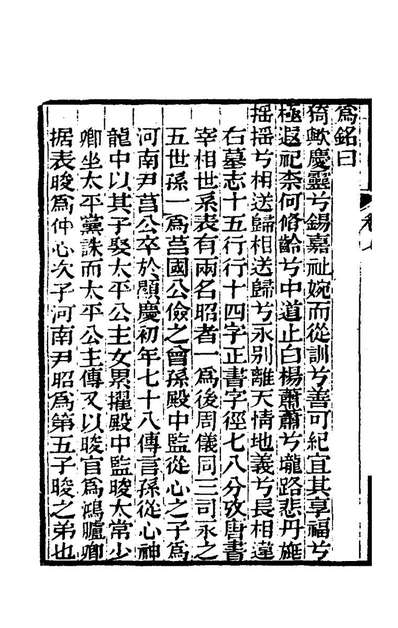 為銘曰
猗歟慶靈兮錫嘉祉婉而從訓兮善可紀宜其享福兮
極遐祀柰何脩齡兮中道止白楊蕭蕭兮壠路悲丹旐
搖搖兮相送歸相送歸兮永别離天情地義兮長相違
右墓志十五行行十四字正書字徑七八分攷唐書
宰相世系表有兩名昭者一為後周儀同三司永之
五世孫一為莒國公儉之曾孫殿中監從心之子為
河南尹莒公卒於顯慶初年七十八傳言孫從心神
龍中以其子娶太平公主女累擢殿中監晙太常少
卿坐太平黨誅而太平公主傳又以晙官為鴻臚卿
据表晙為仲心次子河南尹昭為第五子晙之弟也